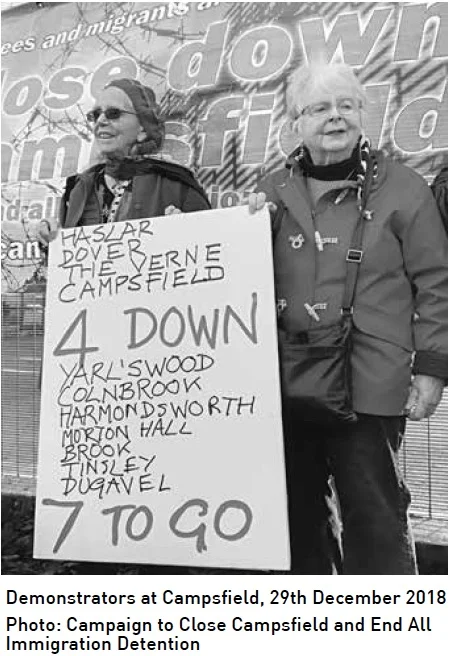 ees and migrants a
ose down
ampsfield
nd all
can
HASLAR
DOVER
THE VERNE
CAMPSFIELD
4 DOWN
YARL'SWOOD
COLNBROOK
HARMONDSWORTH
MORTON HALL
BROOK
TINSLEY
DUGAVEL
7 TO GO
Demonstrators at Campsfield, 29th December 2018
Photo: Campaign to Close Campsfield and End All
Immigration Detention